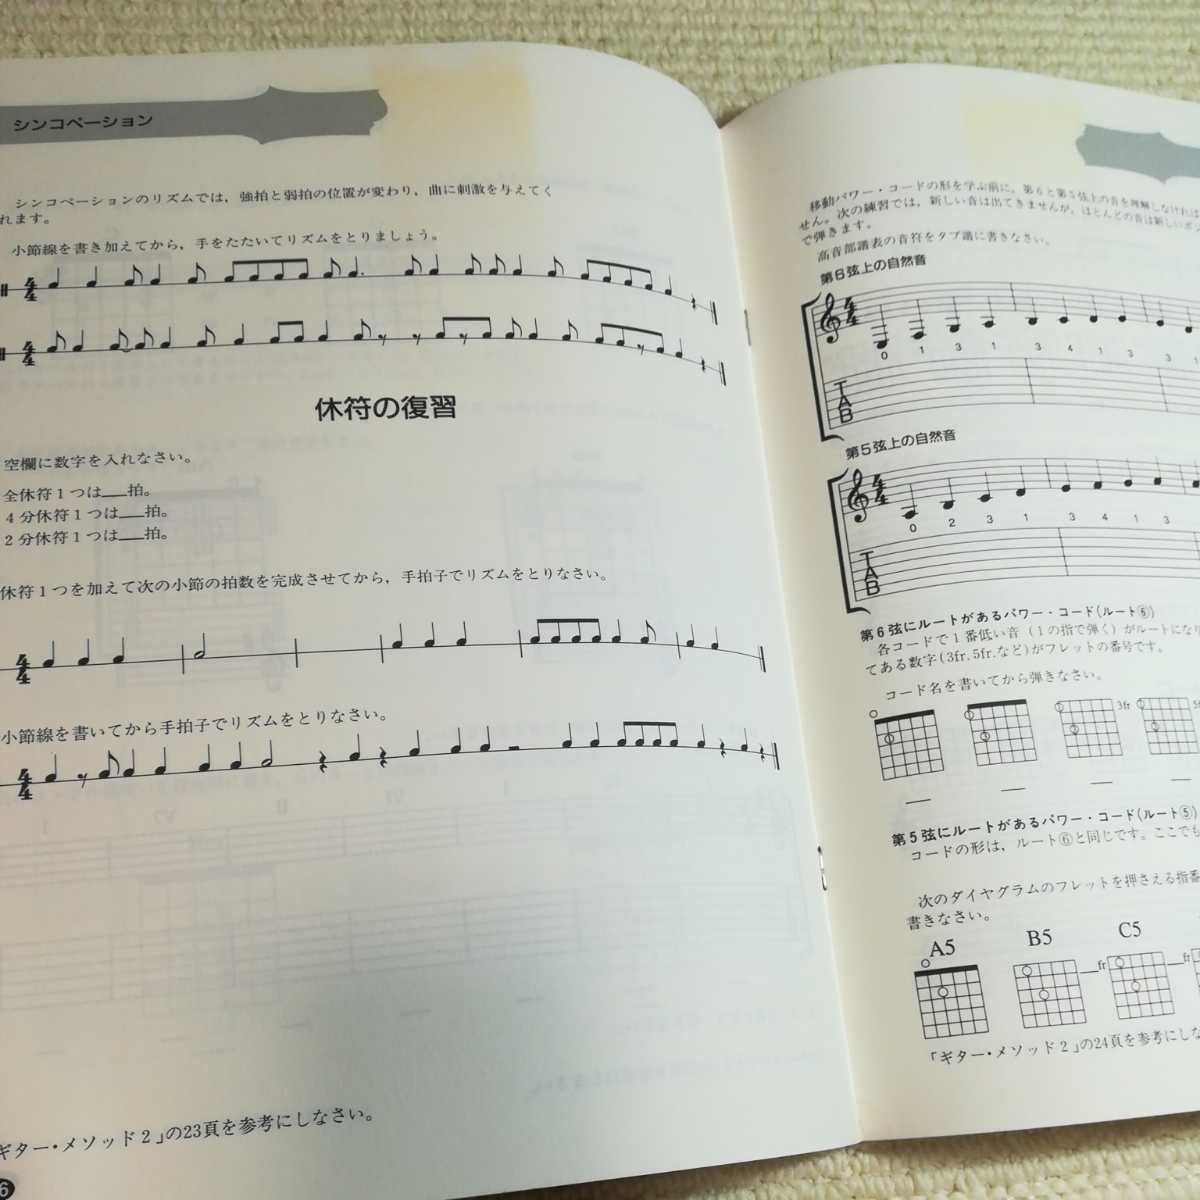 シンコペーション
シンコペーションのリズムでは，強拍と弱拍の位置が変わり，曲に刺激を与えてく
れます。
小節線を書き加えてから，手をたたいてリズムをとりましょう。
4
4
4
4
休符の復習
空欄に数字を入れなさい。
全休符1つは___拍。
4分休符1つは___拍。
2分休符1つは___拍。
休符1つを加えて次の小節の拍数を完成させてから，手拍子でリズムをとりなさい。
4
4
小節線を書いてから手拍子でリズムをとりなさい。
4
4
ギター・メソッド2」の23頁を参考にしなさい。
6
移動パワー・コードの形を学ぶ前に，第6と第5弦上の音を理解しなければ
せん。次の練習では，新しい音は出てきませんが，ほとんどの音は新しいポジ
で弾きます。
高音部譜表の音符をタブ譜に書きなさい。
第6弦上の自然音
4
4
0 1 3 1 3 4 1 3 3 1
TAB
第5弦上の自然音
4
4
0 2 3 1 3 4 1 3
TAB
第6弦にルートがあるパワー・コード(ルート⑥)
各コードで1番低い音（1の指で弾く）がルートになり
てある数字(3fr.5fr.など)がフレットの番号です。
コード名を書いてから弾きなさい。
3fr
第5弦にルートがあるパワー・コード(ルート⑤)
コードの形は，ルート⑥と同じです。ここでも
次のダイヤグラムのフレットを押さえる指番
書きなさい。
A5 B5 C5
___fr ___fr
「ギター・メソッド2」の24頁を参考にしな